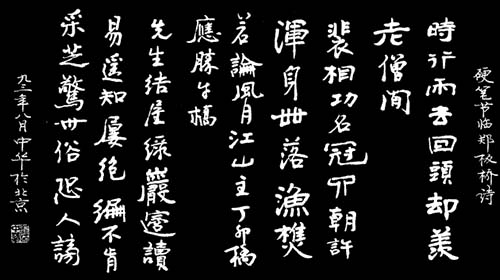 硬笔节临郑板桥诗
時行雨去回頭却羨
老僧閒
裴相功名冠四朝許
渾身世落漁樵
若論風月江山主丁卯橋
應勝午橋
先生結屋綠巖邊讀
易遙知屢絶編不肯
采芝驚世俗恐人謗
九三年八月中华於北京